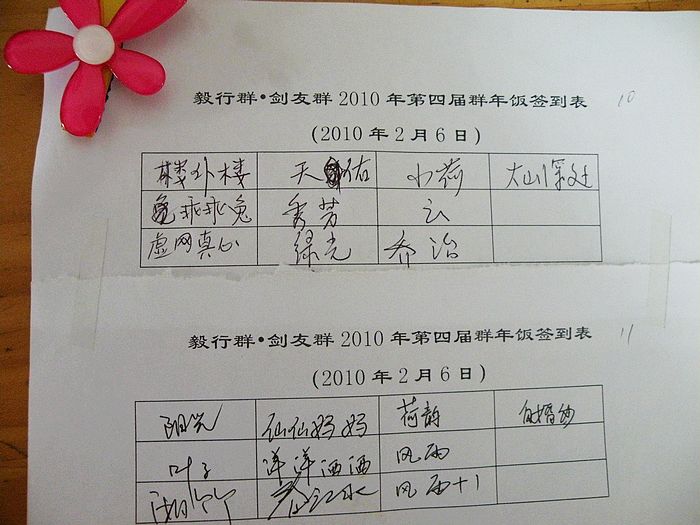 毅行群•剑友群 2010 年第四届群年饭签到表 10
(2010 年 2 月 6 日)
楼外楼 天佑 小荷
兔乖乖兔 秀芳 云
虚网真心 绿光 乔治
毅行群•剑友群 2010 年第四届群年饭签到表 11
(2010 年 2 月 6 日)
阳光 仙仙妈妈 荷韵 白婚纱
叶子 洋洋洒洒 风雨
春江水 风雨+1